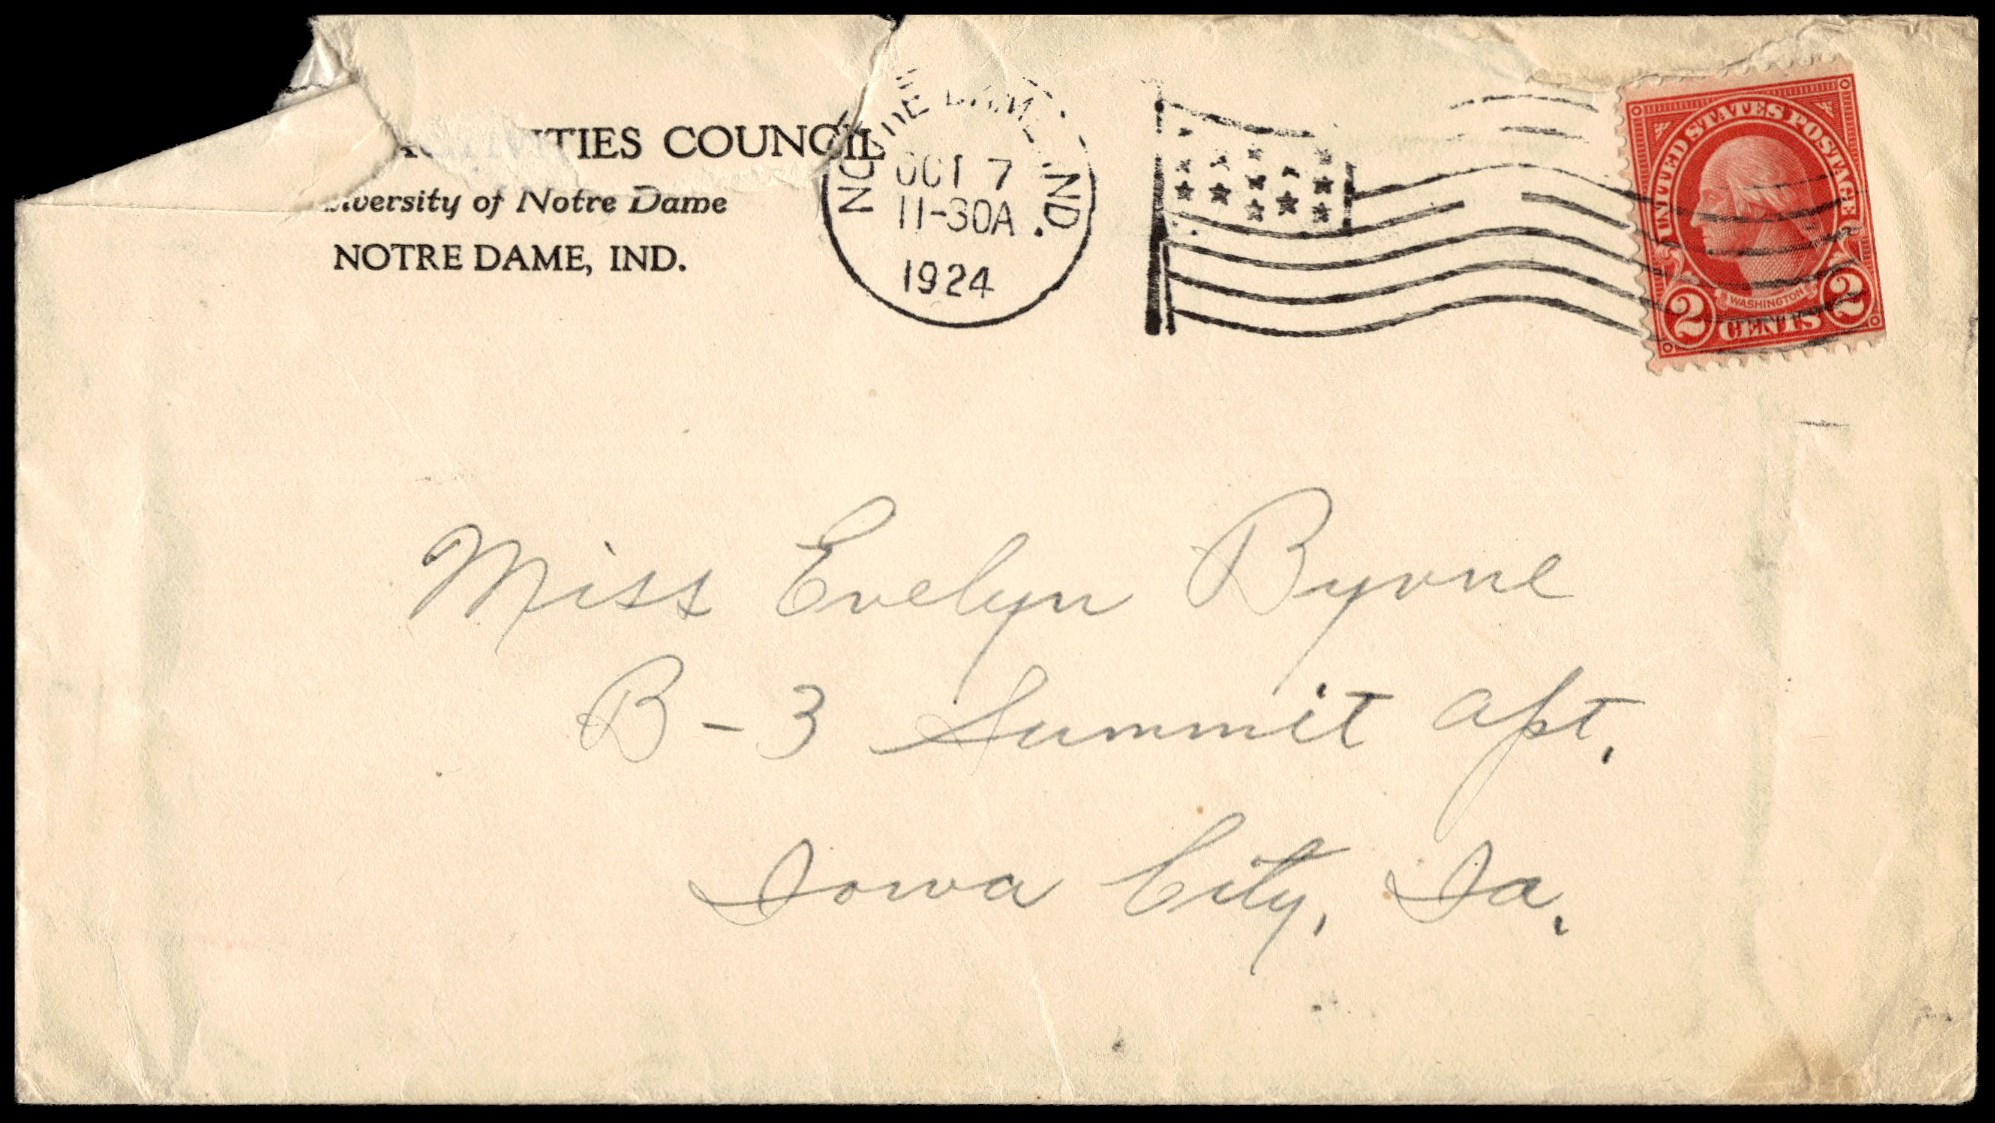 ACTIVITIES COUNCIL
University of Notre Dame
NOTRE DAME, IND.
NOTRE DAME IND.
OCT 7
11-30A
1924
UNITED STATES POSTAGE
WASHINGTON
2 CENTS 2
Miss Evelyn Byrne
B-3 Summit Apt.
Iowa City, Ia.